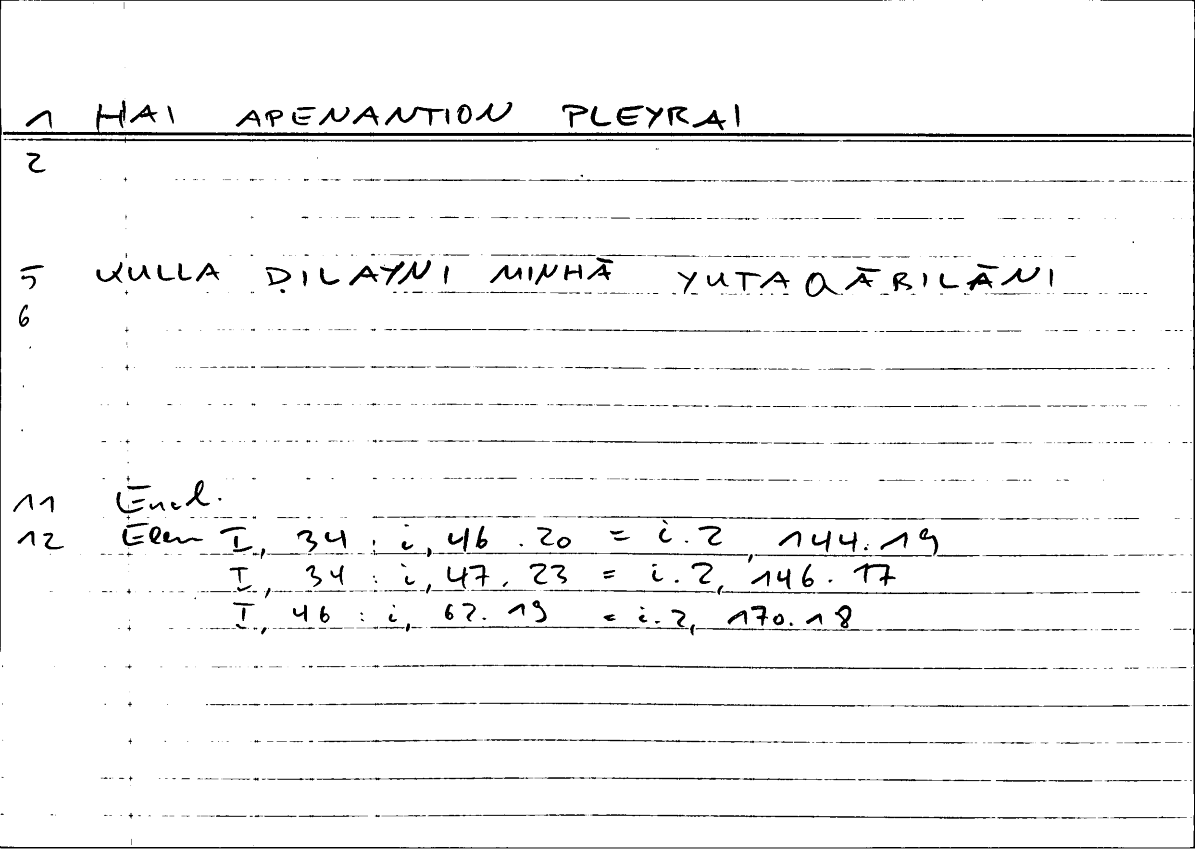 1 HAI APENANTION PLEYRAI
2
5 KULLA ḌILAYNI MINHĀ YUTAQĀBILĀNI
6
11 Eucl.
12 Elem I, 34 : i, 46.20 = i.2, 144.19
I, 34 : i, 47.23 = i.2, 146.17
I, 46 : i, 62.19 = i.2, 170.18